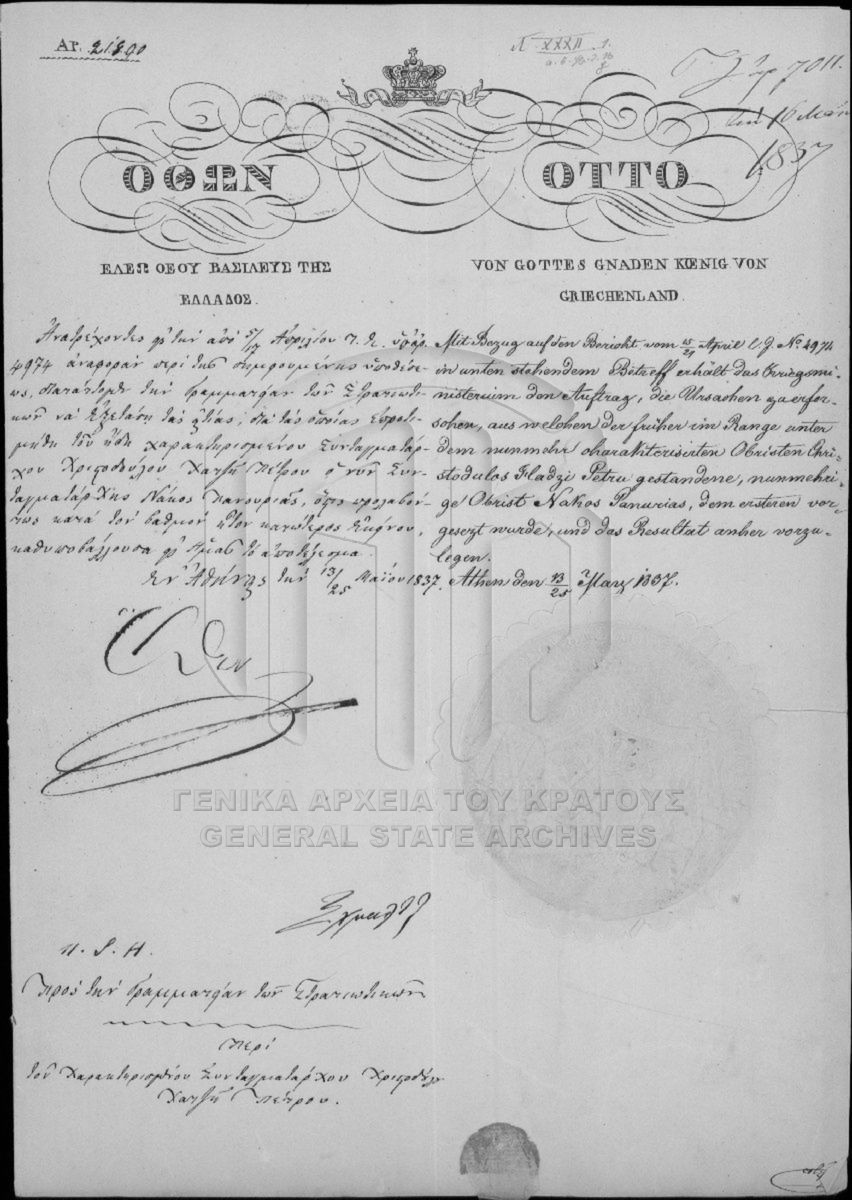 ΑΡ. 21890
N XXXII
7011.
16
1837
ΟΘΩΝ
ΕΛΕΩ ΘΕΟΥ ΒΑΣΙΛΕΥΣ ΤΗΣ
ΕΛΛΑΔΟΣ.
Ἀνατρέχοντες εἰς τὴν ἀπὸ 5/17 Ἀπριλίου τ. ἔ. ὑπ' ἀρ.
4974 ἀναφορὰν περὶ τῆς σημειουμένης ὑποθέσε-
ως, τὴν Γραμματείαν τῶν Στρατιωτι-
κῶν νὰ ἐξετάσῃ τὰς αἰτίας, διὰ τὰς ὁποίας ἐπροτι-
μήθη τοῦ ἤδη χαρακτηρισμένου Συνταγματάρ-
χου Χριστοδούλου Χατζῆ Πέτρου ὁ νῦν Συν-
ταγματάρχης Νάκος Πανουριᾶς, ὅστις προλαβόν-
τως κατὰ τὸν βαθμὸν ἦτον κατώτερος ἐκείνου,
καθυποβάλλουσα εἰς Ἡμᾶς τὸ ἀποτέλεσμα.
Ἐν Ἀθήναις τὴν 13/25 Μαΐου 1837.
OTTO
VON GOTTES GNADEN KŒNIG VON
GRIECHENLAND.
Mit Bezug auf den Bericht vom April l. J. No 4974
in unten stehendem Betreff erhält das Kriegsmi-
nisterium den Auftrag, die Ursachen zu erfor-
schen, aus welchen der früher im Range unter
dem nunmehr charakterisirten Obristen Chri-
stodulos Hadzi Petru gestandene, nunmehri-
ge Obrist Nakos Panurias, dem ersteren vor-
gesezt wurde, und das Resultat anher vorzu-
legen.
Athen den 13/25 März 1837.
Ὄθων
ΓΕΝΙΚΑ ΑΡΧΕΙΑ ΤΟΥ ΚΡΑΤΟΥΣ
GENERAL STATE ARCHIVES
Πρὸς τὴν Γραμματείαν τῶν Στρατιωτικῶν
Περὶ
τοῦ Χαρακτηρισθέντος Συνταγματάρχου Χριστοδούλου
Χατζῆ Πέτρου.